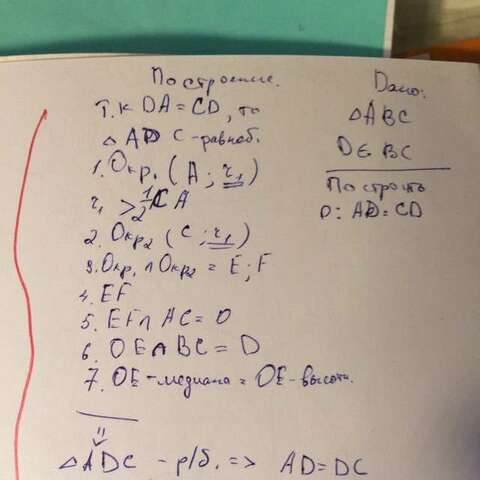 Построение.
Т.к DA = CD, то
△ ADC - равноб.
1. Окр₁ (A ; r₁)
r₁ > 1/2 CA
2. Окр₂ (C ; r₁)
3. Окр₁ ∩ Окр₂ = E ; F
4. EF
5. EF ∩ AC = O
6. OE ∩ BC = D
7. OE - медиана = OE - высота.
△ ADC - р/б. => AD = DC
Дано:
△ ABC
D ∈ BC
Построить
D : AD = CD